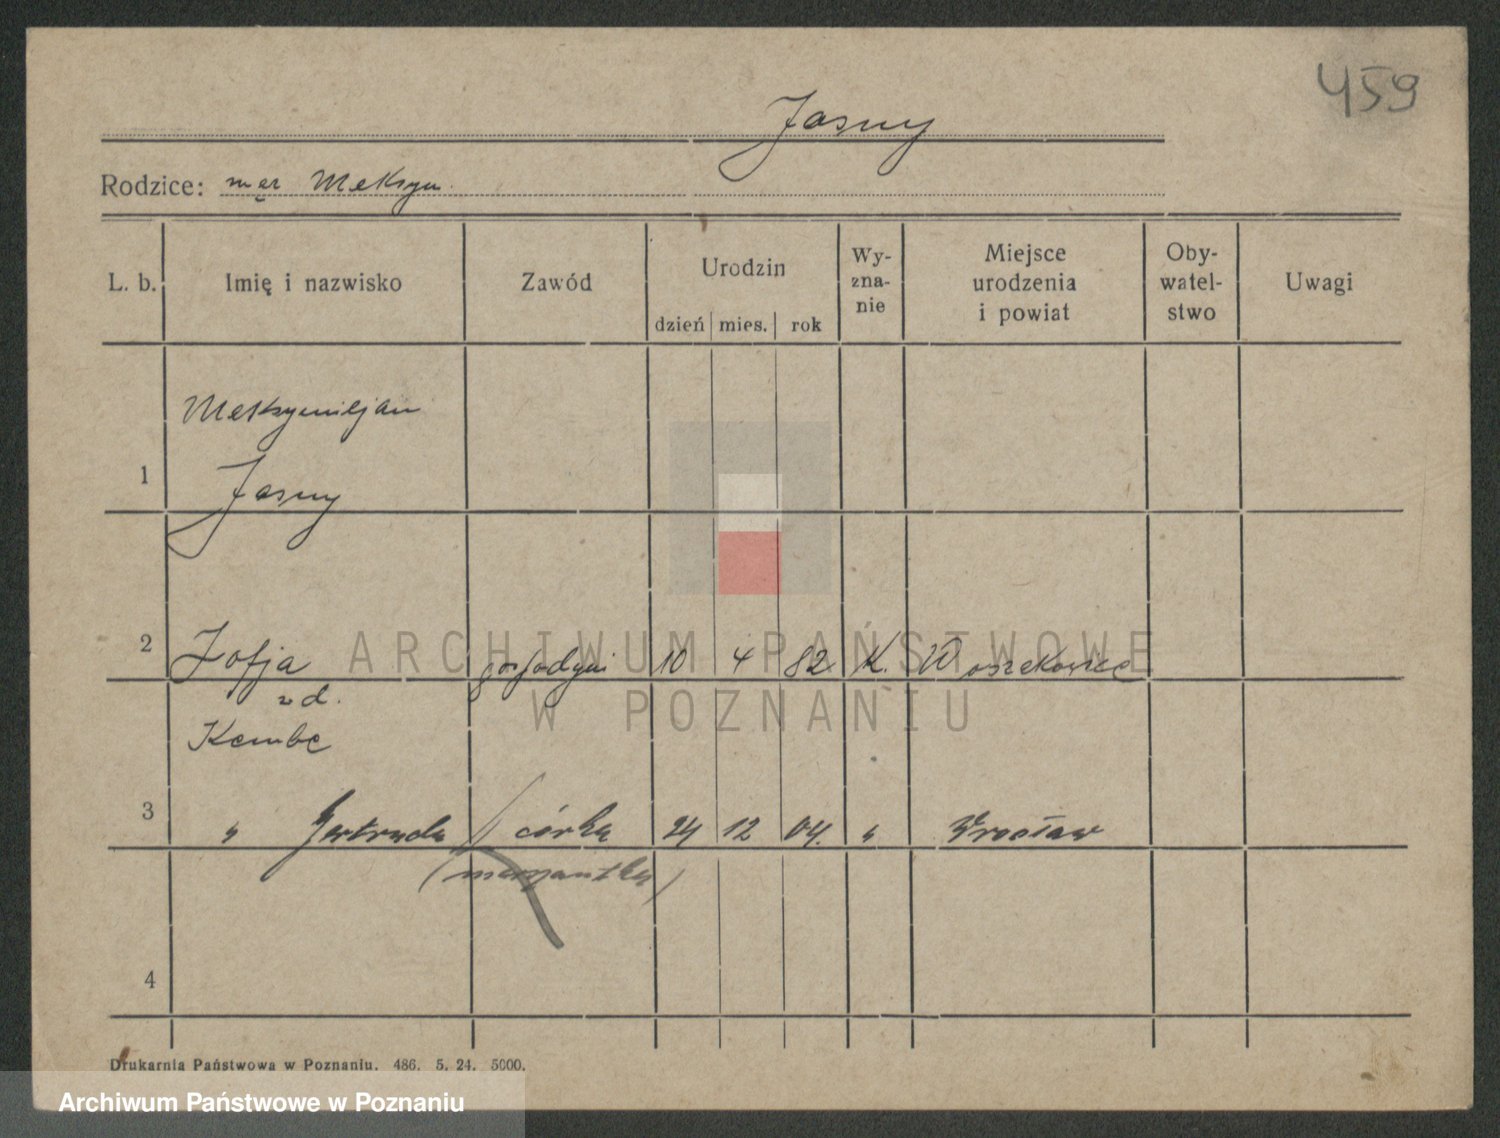 459
Jasny
Rodzice: mąż Maksym.
L. b. Imię i nazwisko Zawód Urodzin dzień mies. rok Wy-zna-nie Miejsce urodzenia i powiat Oby-watel-stwo Uwagi
Maksymiljan
1 Jasny
2 Zofja gospodyni 10 4 82 K. Woszekowice
zd.
Kembe
3 " Gertruda córka 24 12 04. " Wrocław
4
Drukarnia Państwowa w Poznaniu. 486. 5. 24. 5000.
ARCHIWUM PAŃSTWOWE
W POZNANIU
Archiwum Państwowe w Poznaniu